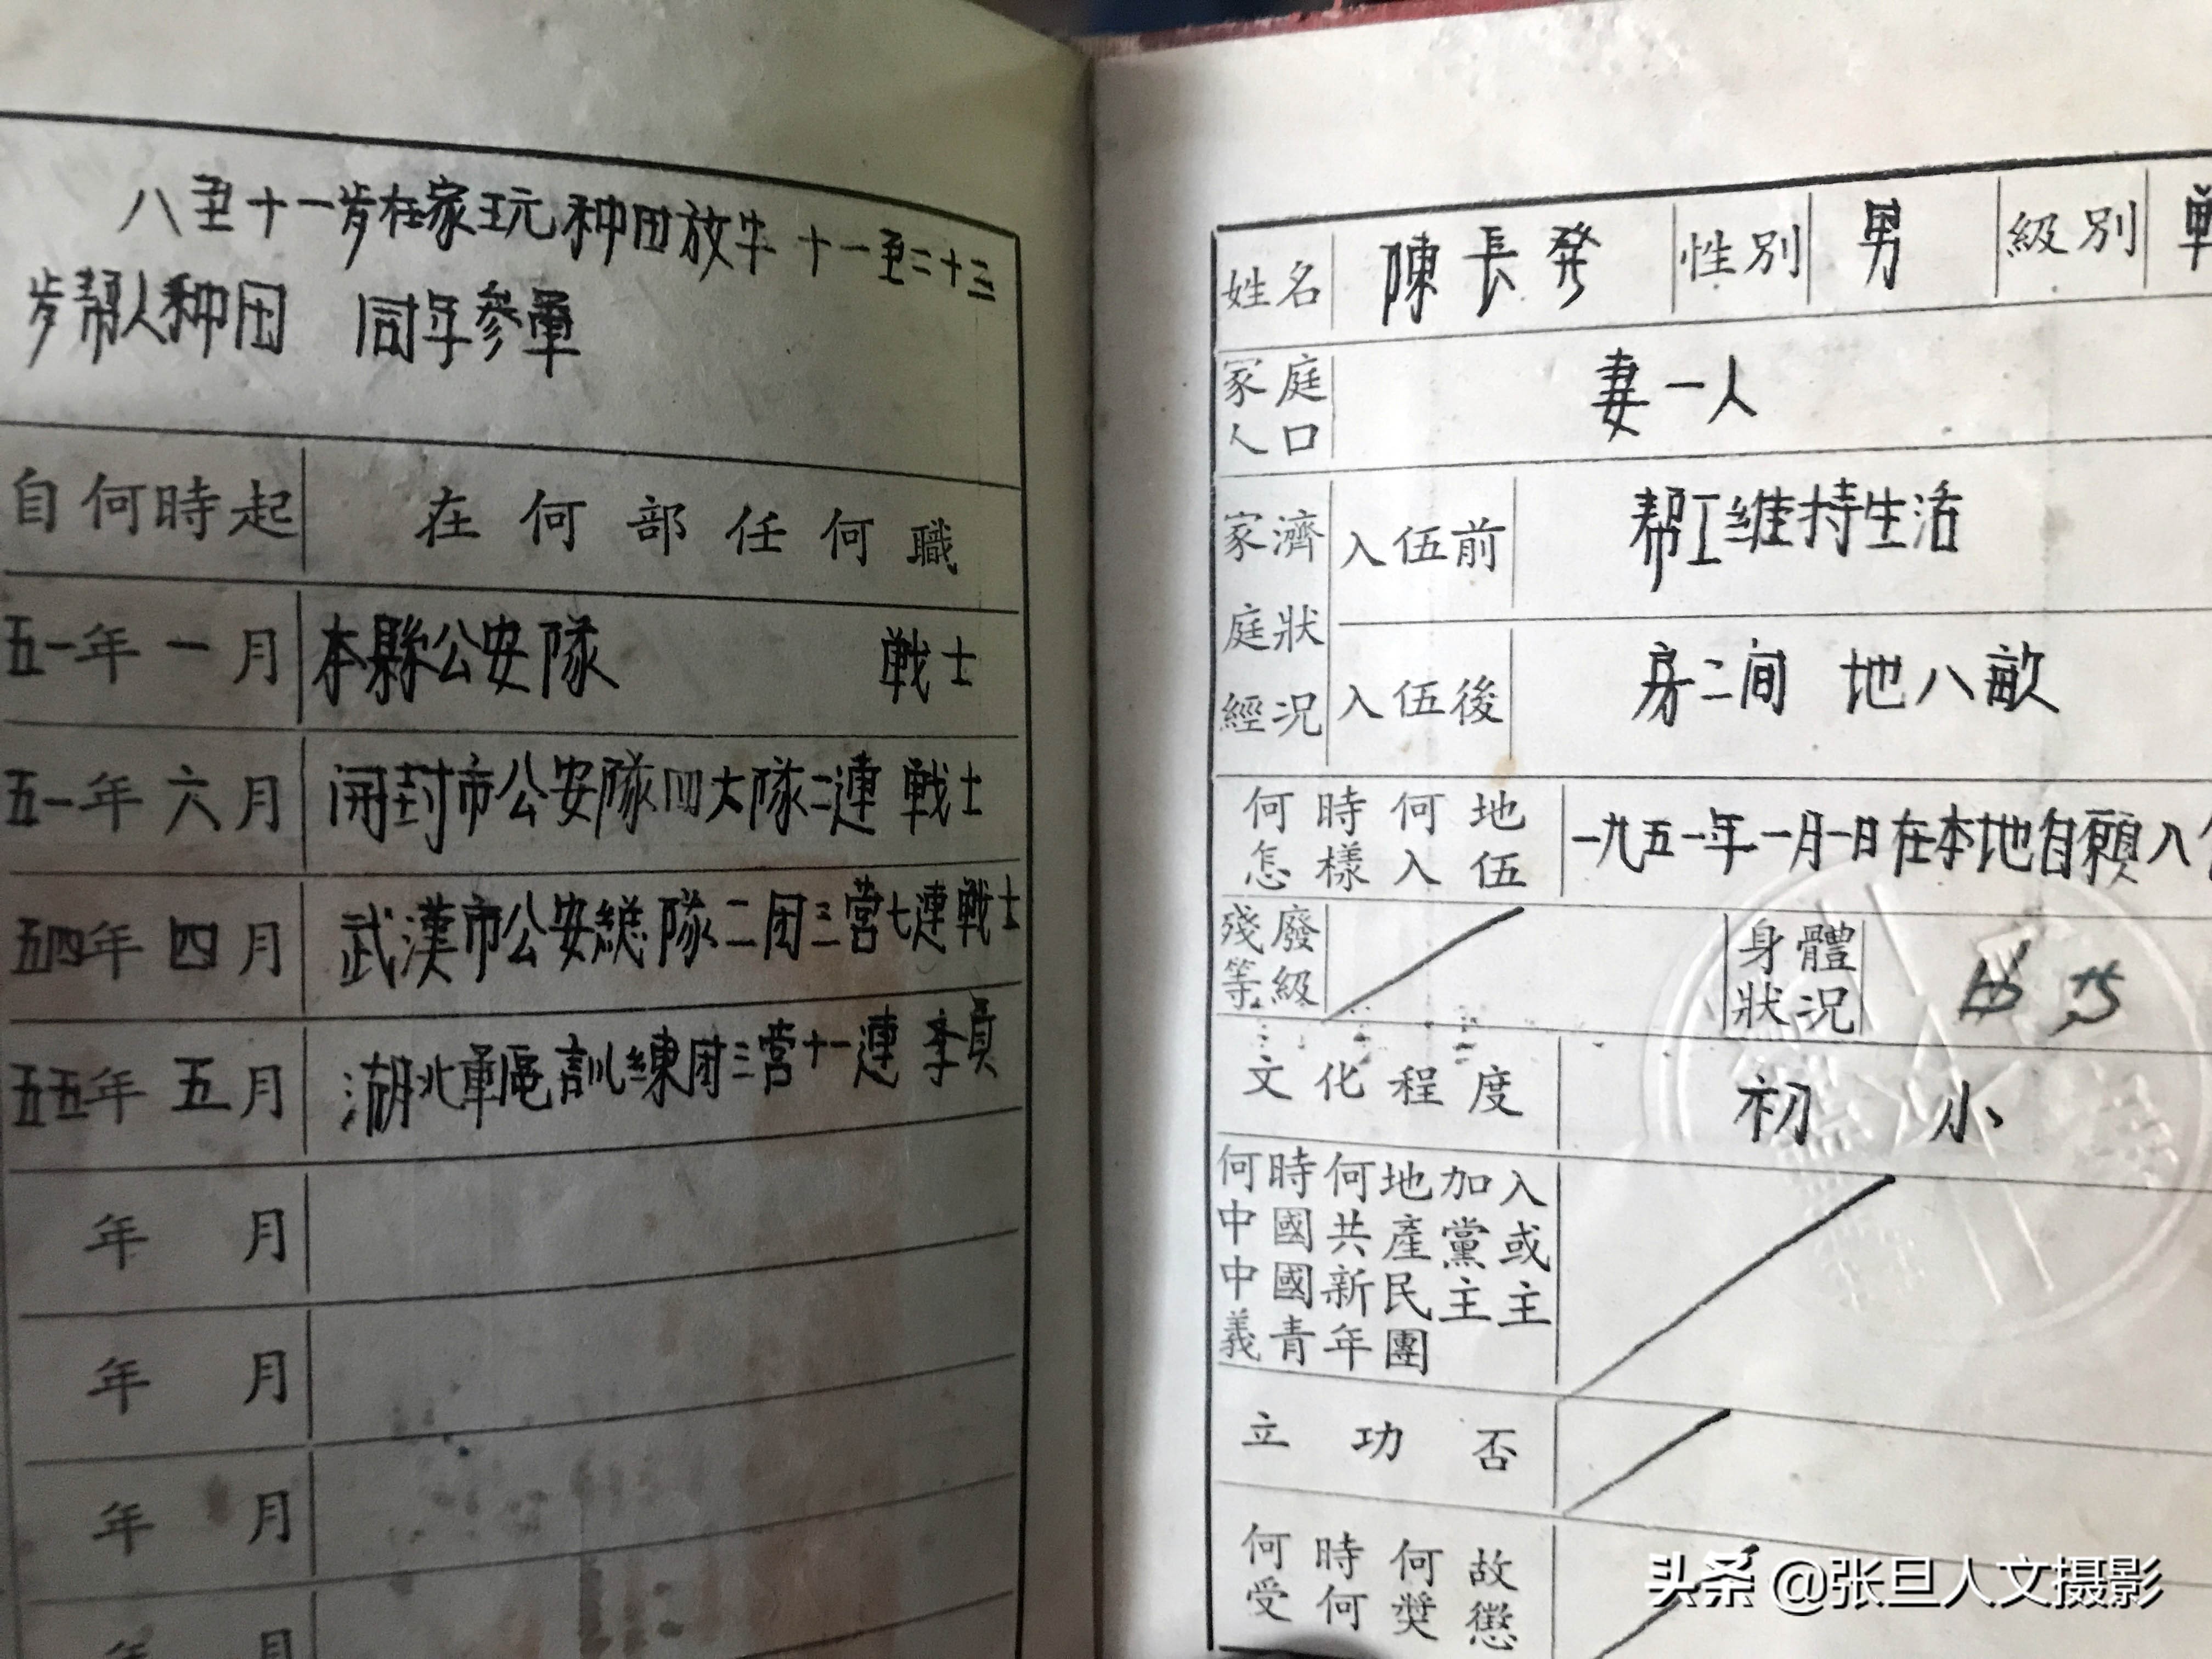 八至十一岁在家玩种田放牛 十一至二十三
岁帮人种田 同年参軍
自何時起 在何部任何職
五一年一月 本縣公安隊 戦士
五一年六月 開封市公安隊四大隊二連 戦士
五四年四月 武漢市公安總隊二团三营七連戦士
五五年五月 湖北軍區訓練团三营十一連 学員
年 月
年 月
年 月
年 月
姓名 陳長発 性別 男 級別
家庭人口 妻一人
家庭經濟狀況 入伍前 帮工維持生活
入伍後 房二间 地八畝
何時何地怎樣入伍 一九五一年一月一日在本地自願入
殘廢等級 身體狀況
文化程度 初小
何時何地加入
中國共產黨或
中國新民主主
義青年團
立功否
何時何故
受何奬懲
头条 @张旦人文摄影